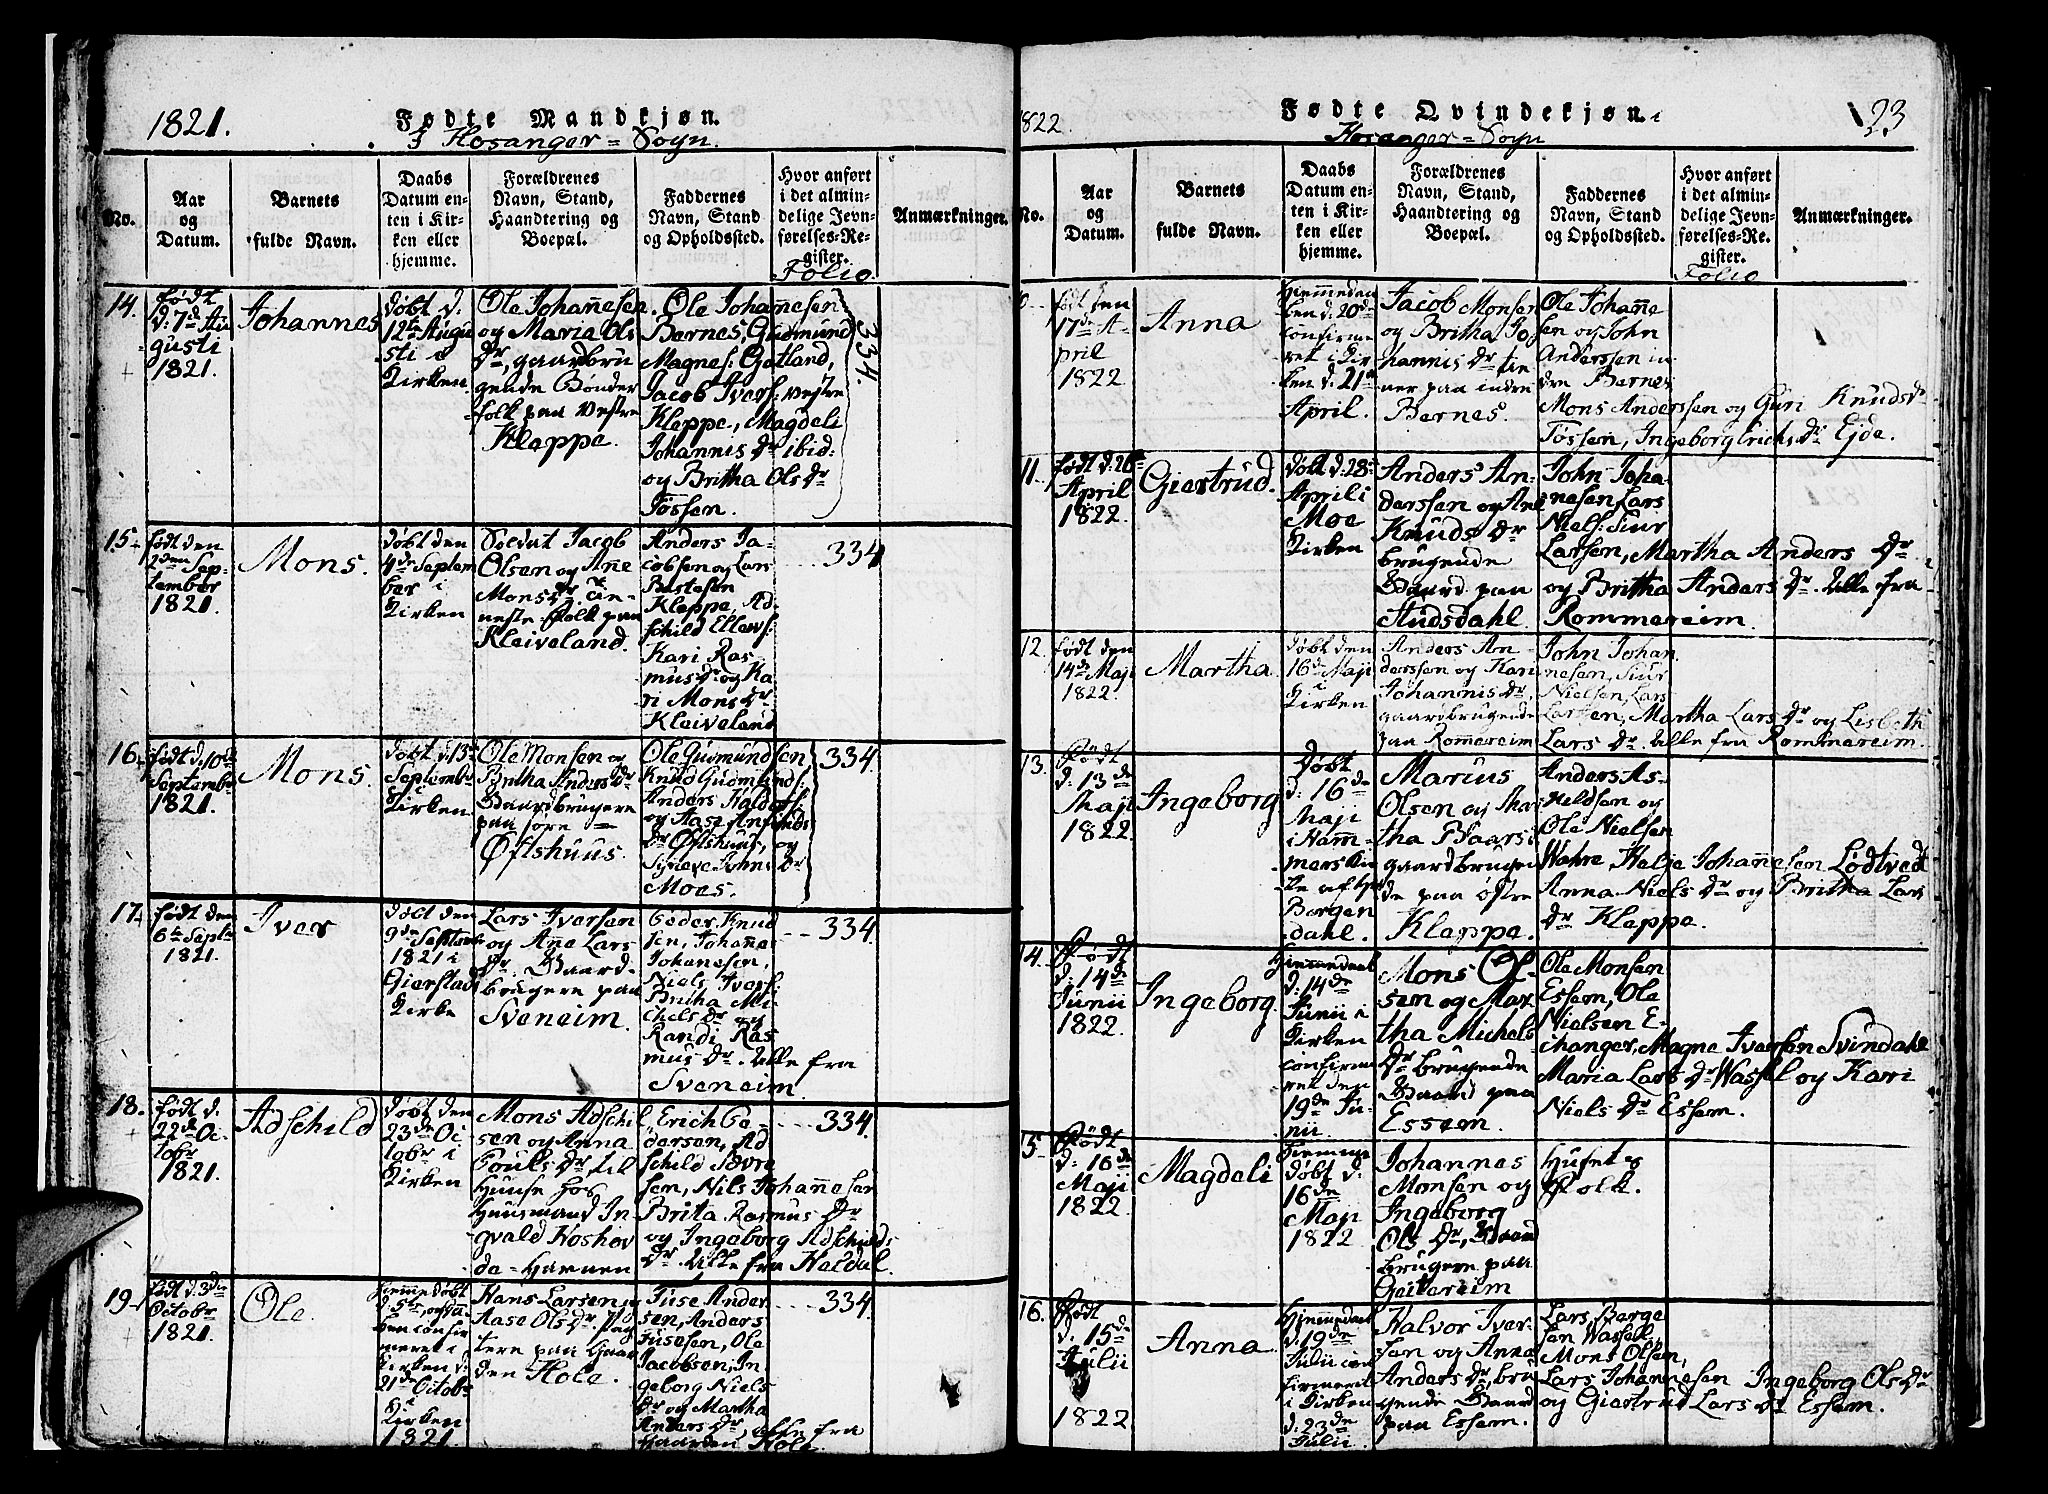 1821. Fødte Mandkjøn.
I Hosanger = Sogn.
No.
Aar
og
Datum.
Barnets
fulde Navn.
Daabs
Datum en-
ten i Kir-
ken eller
hjemme.
Forældrenes
Navn, Stand,
Haandtering og
Boepæl.
Faddernes
Navn, Stand
og Opholdssted.
Hvor anført
i det almin-
delige Jevn-
førelses-Re-
gister.
Folio
Anmærkninger.
14.
født
d: 7de Au
gusti
1821.
Johannes
døbt d.
12te Augu
sti i
Kirken
Ole Johannesen
og Maria Ols
Dr, gaardbru
gende Bønder
folk paa Vestre
Kleppe.
Ole Johannesen
Bernes, Gudmund
Magnes: Gotland,
Jacob Ivers: vestre
Kleppe, Magdeli
Johannis Dr ibid:
og Britha Ols Dr
Tossen.
334.
15.
født den
2den Sep-
tember
1821.
Mons.
døbt den
4de Septem
ber i
Kirken
Soldat Jacob
Olsen og Ane
Mons Dr tie-
neste folk paa
Kleiveland.
Anders Ja-
cobsen og Lars
Kleppe, Ad-
schild Ellews:
Kari Ras-
mus Dr og Ka
ri Mons Dr
Kleiveland
334
16.
født d. 10de
Septembr
1821.
Mons.
døbt d. 13de
Septembr
i
Kirken
Ole Monsen og
Britha Anders Dr
Gaardbrugere
paa søre
Øftshuus.
Ole Gudmundsen
Knud Gudmunds:
Anders Haldors:
og Aase
Dr Øftshuus, og
Johns Dr
Moes.
334.
17.
født den
6te Septr
1821.
Iver
døbt den
9de Septem
1821 i
Gierstad
Kirke
Lars Iversen
og Ane Lars
Dr. Gaard-
brugere paa
Sveneim.
Peder Knud
sen, Johanne
Johanesen,
Niels Ivers:
Britha Mi-
chels Dr og
Randi Ras
mus Dr. Alle fra
Sveneim.
334.
18.
født d.
22de Oc
tobr
1821.
Adschild
døbt den
23de Oc
tobr i
Kirken
Mons Adschil
sen og Anna
Pouls Dr til
Huuse hos
Huusmand In
gvald Hoshov
de Hamnen
Erich Pe-
dersen, Ad
schild Sævre
sen, Nils Johannesen
Brita Rasmus Dr
og Ingeborg Adschilds
Dr. Alle fra Haldal.
334.
19.
født d. 3die
Octobr
1821.
Ole.
Hiemmedøbt
d. 5te, og Daa
ben confir
meret i
Kirken d:
21de Octobr
i
Kirken
1821.
Hans Larsen og
Aase Ols Dr. Pag
tere paa Gaar
den Hole.
Tuse Ander
sen, Anders
Tusesen, Ole
Jacobsen, In
geborg Niels
Dr og Martha
Anders Dr, alle fra
Gaarden Hole
334.
1822. Fødte Qvindekjøn. 23
Hosanger = Sogn
No.
Aar
og
Datum.
Barnets
fulde Navn.
Daabs
Datum en-
ten i Kir-
ken eller
hjemme.
Forældrenes
Navn, Stand,
Haandtering og
Boepæl.
Faddernes
Navn, Stand
og Opholdssted.
Hvor anført
i det almin-
delige Jevn-
førelses-Re-
gister.
Folio
Anmærkninger.
født den
17de A-
pril
1822
Anna
Hiemmedaa
ben d: 20de
confirme
ret i Kir
ken d: 21de
April.
Jacob Monsen
og Britha Jo
hannis Dr tie
ner paa indre
Bernes.
Ole Johanne
sen og John
Anderssen in
dre Bernes
Mons Anderssen og Guri Knuds Dr
Tossen, Ingeborg Erichs Dr Eide.
11.
født d. 26de
April
1822.
Giertrud.
døbt d: 28de
April i
Moe
Kirken
Anders An-
derssen og Ane
Knuds Dr
brugende
Gaard paa
Audsdahl.
John Joha
nesen Lars
Niels: Siur
Larsen, Martha Anders Dr
og Britha Anders Dr. Alle fra
Rommereim.
12.
født den
14de Maji
1822.
Martha
døbt den
16de Maji
i
Kirken
Anders An-
derssen og Kari
Johannis Dr.
gaardbrugende
paa Romereim
John Johan
nesen, Siur
Nielsen, Lars
Larsen, Martha Lars Dr og Lisbeth
Lars Dr. Alle fra Rommereim.
13.
Født
d: 13de
Maji
1822.
Ingeborg
Døbt
d: 16de
Maji
i Ham-
mers Kir
ke af hr
Borgen
dahl.
Marius
Olsen og Mar
tha Baars:
gaardbrugen
de paa østre
Kleppe.
Anders As-
Ole Nielsen
Wahre Helje Johannesen Lødtvedt
Anna Niels Dr og Britha Lars
Dr Kleppe.
14.
Født
d. 14de
Junii
1822.
Ingeborg.
Hiemmedøbt
d: 14de
Junii i
Kirken
confirme
ret den
19de Ju-
nii.
Mons Ol-
sen og Mar
tha Michels
Dr brugende
Gaard paa
Essem.
Ole Monsen
Essem, Ole
Nielsen E-
changer, Magne Iversen Svindahl
Maria Lars Dr Wassel og Kari
Niels Dr Essem.
15
Født
d: 16de
Maji
1822.
Magdeli
Hiemme
døbt d:
16de
Maji
1822
Johannes
Monsen og
Ingeborg
Ols Dr, Gaard
brugere paa
Geitereim
Husets
Folk.
16.
Født
d. 15de
Julii
1822
Anna
Hiemmedøbt
d: 19de
Julii con
firmeret
i Kirken
d: 23de
Julii.
Halvor Iver-
sen og Anna
Anders Dr, bru
gende Gaard
paa Essem.
Lars Borge
sen Wassel,
Mons Olsen,
Lars Johannesen Ingeborg Ols Dr
og Giertrud Lars Dr Essem.